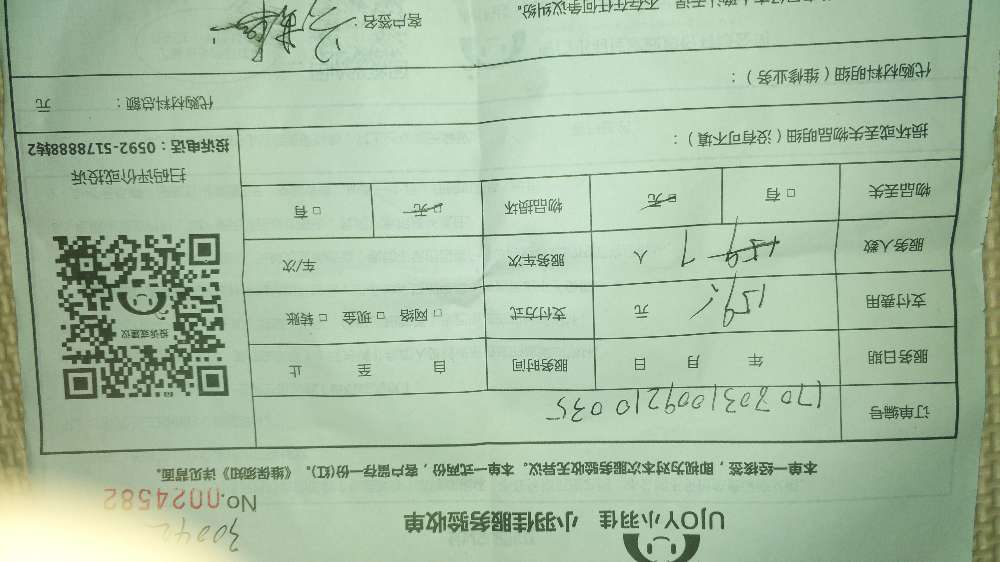 30042
UjOY小羽佳 小羽佳服务验收单
No.0024582
本单一经签核，即视为对本次服务验收无异议。本单一式两份，客户留存一份(红)。《维保须知》详见背面。
订单编号 1707031009210035
服务日期 年 月 日 服务时间 自 至 止
支付费用 159 元 支付方式 □ 网络 □ 现金 □ 转账
服务人数 1 人 服务车次 车/次
物品丢失 □ 有 □ 无 物品损坏 □ 无 □ 有
损坏或丢失物品明细（没有可不填）：
代购材料明细（维修业务）：
代购材料总额： 元
投诉或建议
扫码评价或投诉
投诉电话：0592-5178888转2
不存在任何争议纠纷。
客户签名：